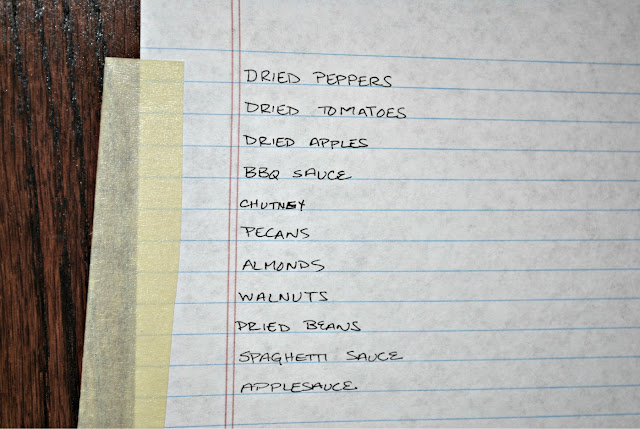 DRIED PEPPERS
DRIED TOMATOES
DRIED APPLES
BBQ SAUCE
CHUTNEY
PECANS
ALMONDS
WALNUTS
DRIED BEANS
SPAGHETTI SAUCE
APPLESAUCE